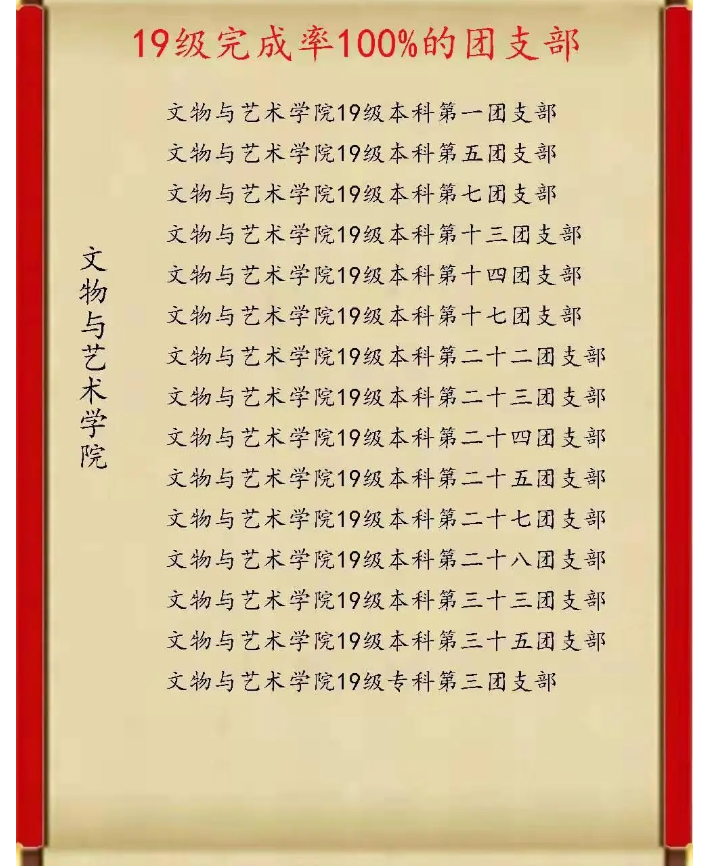 19级完成率100%的团支部
文物与艺术学院
文物与艺术学院19级本科第一团支部
文物与艺术学院19级本科第五团支部
文物与艺术学院19级本科第七团支部
文物与艺术学院19级本科第十三团支部
文物与艺术学院19级本科第十四团支部
文物与艺术学院19级本科第十七团支部
文物与艺术学院19级本科第二十二团支部
文物与艺术学院19级本科第二十三团支部
文物与艺术学院19级本科第二十四团支部
文物与艺术学院19级本科第二十五团支部
文物与艺术学院19级本科第二十七团支部
文物与艺术学院19级本科第二十八团支部
文物与艺术学院19级本科第三十三团支部
文物与艺术学院19级本科第三十五团支部
文物与艺术学院19级专科第三团支部